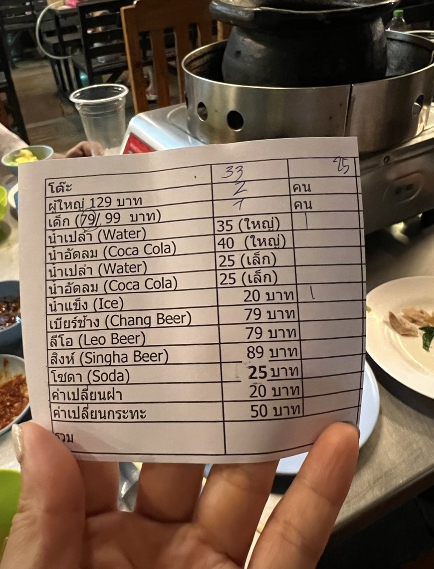 โต๊ะ 33 25
ผู้ใหญ่ 129 บาท 2 คน
เด็ก (79/ 99 บาท) 1 คน
น้ำเปล่า (Water) 35 (ใหญ่) 1
น้ำอัดลม (Coca Cola) 40 (ใหญ่)
น้ำเปล่า (Water) 25 (เล็ก)
น้ำอัดลม (Coca Cola) 25 (เล็ก)
น้ำแข็ง (Ice) 20 บาท 1
เบียร์ช้าง (Chang Beer) 79 บาท
ลีโอ (Leo Beer) 79 บาท
สิงห์ (Singha Beer) 89 บาท
โซดา (Soda) 25 บาท
ค่าเปลี่ยนฝา 20 บาท
ค่าเปลี่ยนกระทะ 50 บาท
รวม